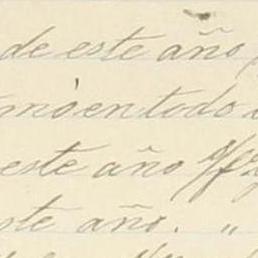 de este año
en todo
este año
este año. „